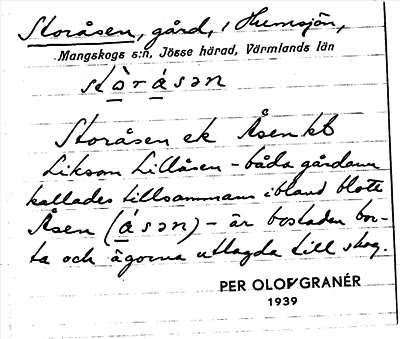 Storåsen, gård, i Humsjön,
Mangskogs s:n, Jösse härad, Värmlands län
stòrásən
Storåsen ek Åsen kb
Liksom Lillåsen – båda gårdarna
kallades tillsammans ibland blott
Åsen (ásən) – är bostaden bor-
ta och ägorna utlagda till skog.
PER OLOF GRANÉR
1939